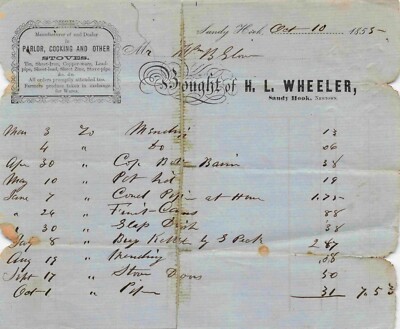 Manufacturer of and Dealer in
PARLOR, COOKING AND OTHER
STOVES.
Tin, Sheet-Iron, Copper-ware, Lead-
pipe, Sheet-lead, Sheet Zinc, Stove pipe,
&c. &c.
All orders promptly attended too.
Farmers produce taken in exchange
for Wares.
Sandy Hook, Oct 10 1855
Mr Wm B Glover
Bought of H. L. WHEELER,
Sandy Hook, Newtown.
Mar 3 To Mending 13
4 " Do 06
Apr 30 " Cop Basin 38
May 10 " Pot lid 19
June 7 " Pipe at Home 1.25
" 24 " Fruit Cans 88
" 30 " Dish 38
July 8 " Kettle by S Peck 2.87
Aug 13 " Mending 08
Sept 17 " Stove Doors 50
Oct 1 " Pipe 31 7.53